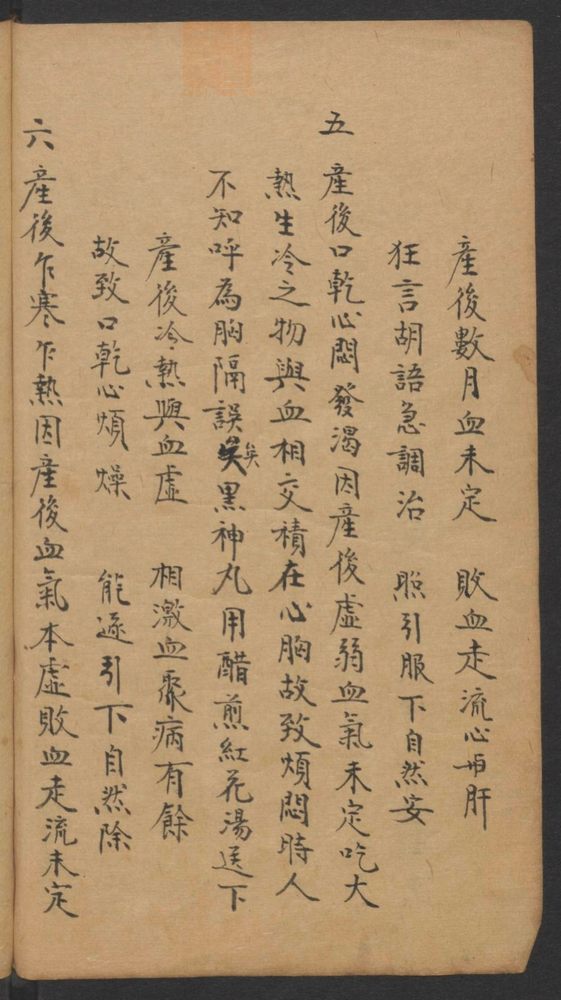 產後數月血未定　敗血走流心与肝
狂言胡語急調治　照引服下自然安
五　產後口乾心悶發渴因產後虛弱血氣未定吃大
熱生冷之物與血相交積在心胸故致煩悶時人
不知呼為胸隔誤矣矣黑神丸用醋煎紅花湯送下
產後冷熱與血虛　相激血聚病有餘
故致口乾心煩燥　能逐引下自然除
六產後乍寒乍熱因產後血氣本虛敗血走流未定